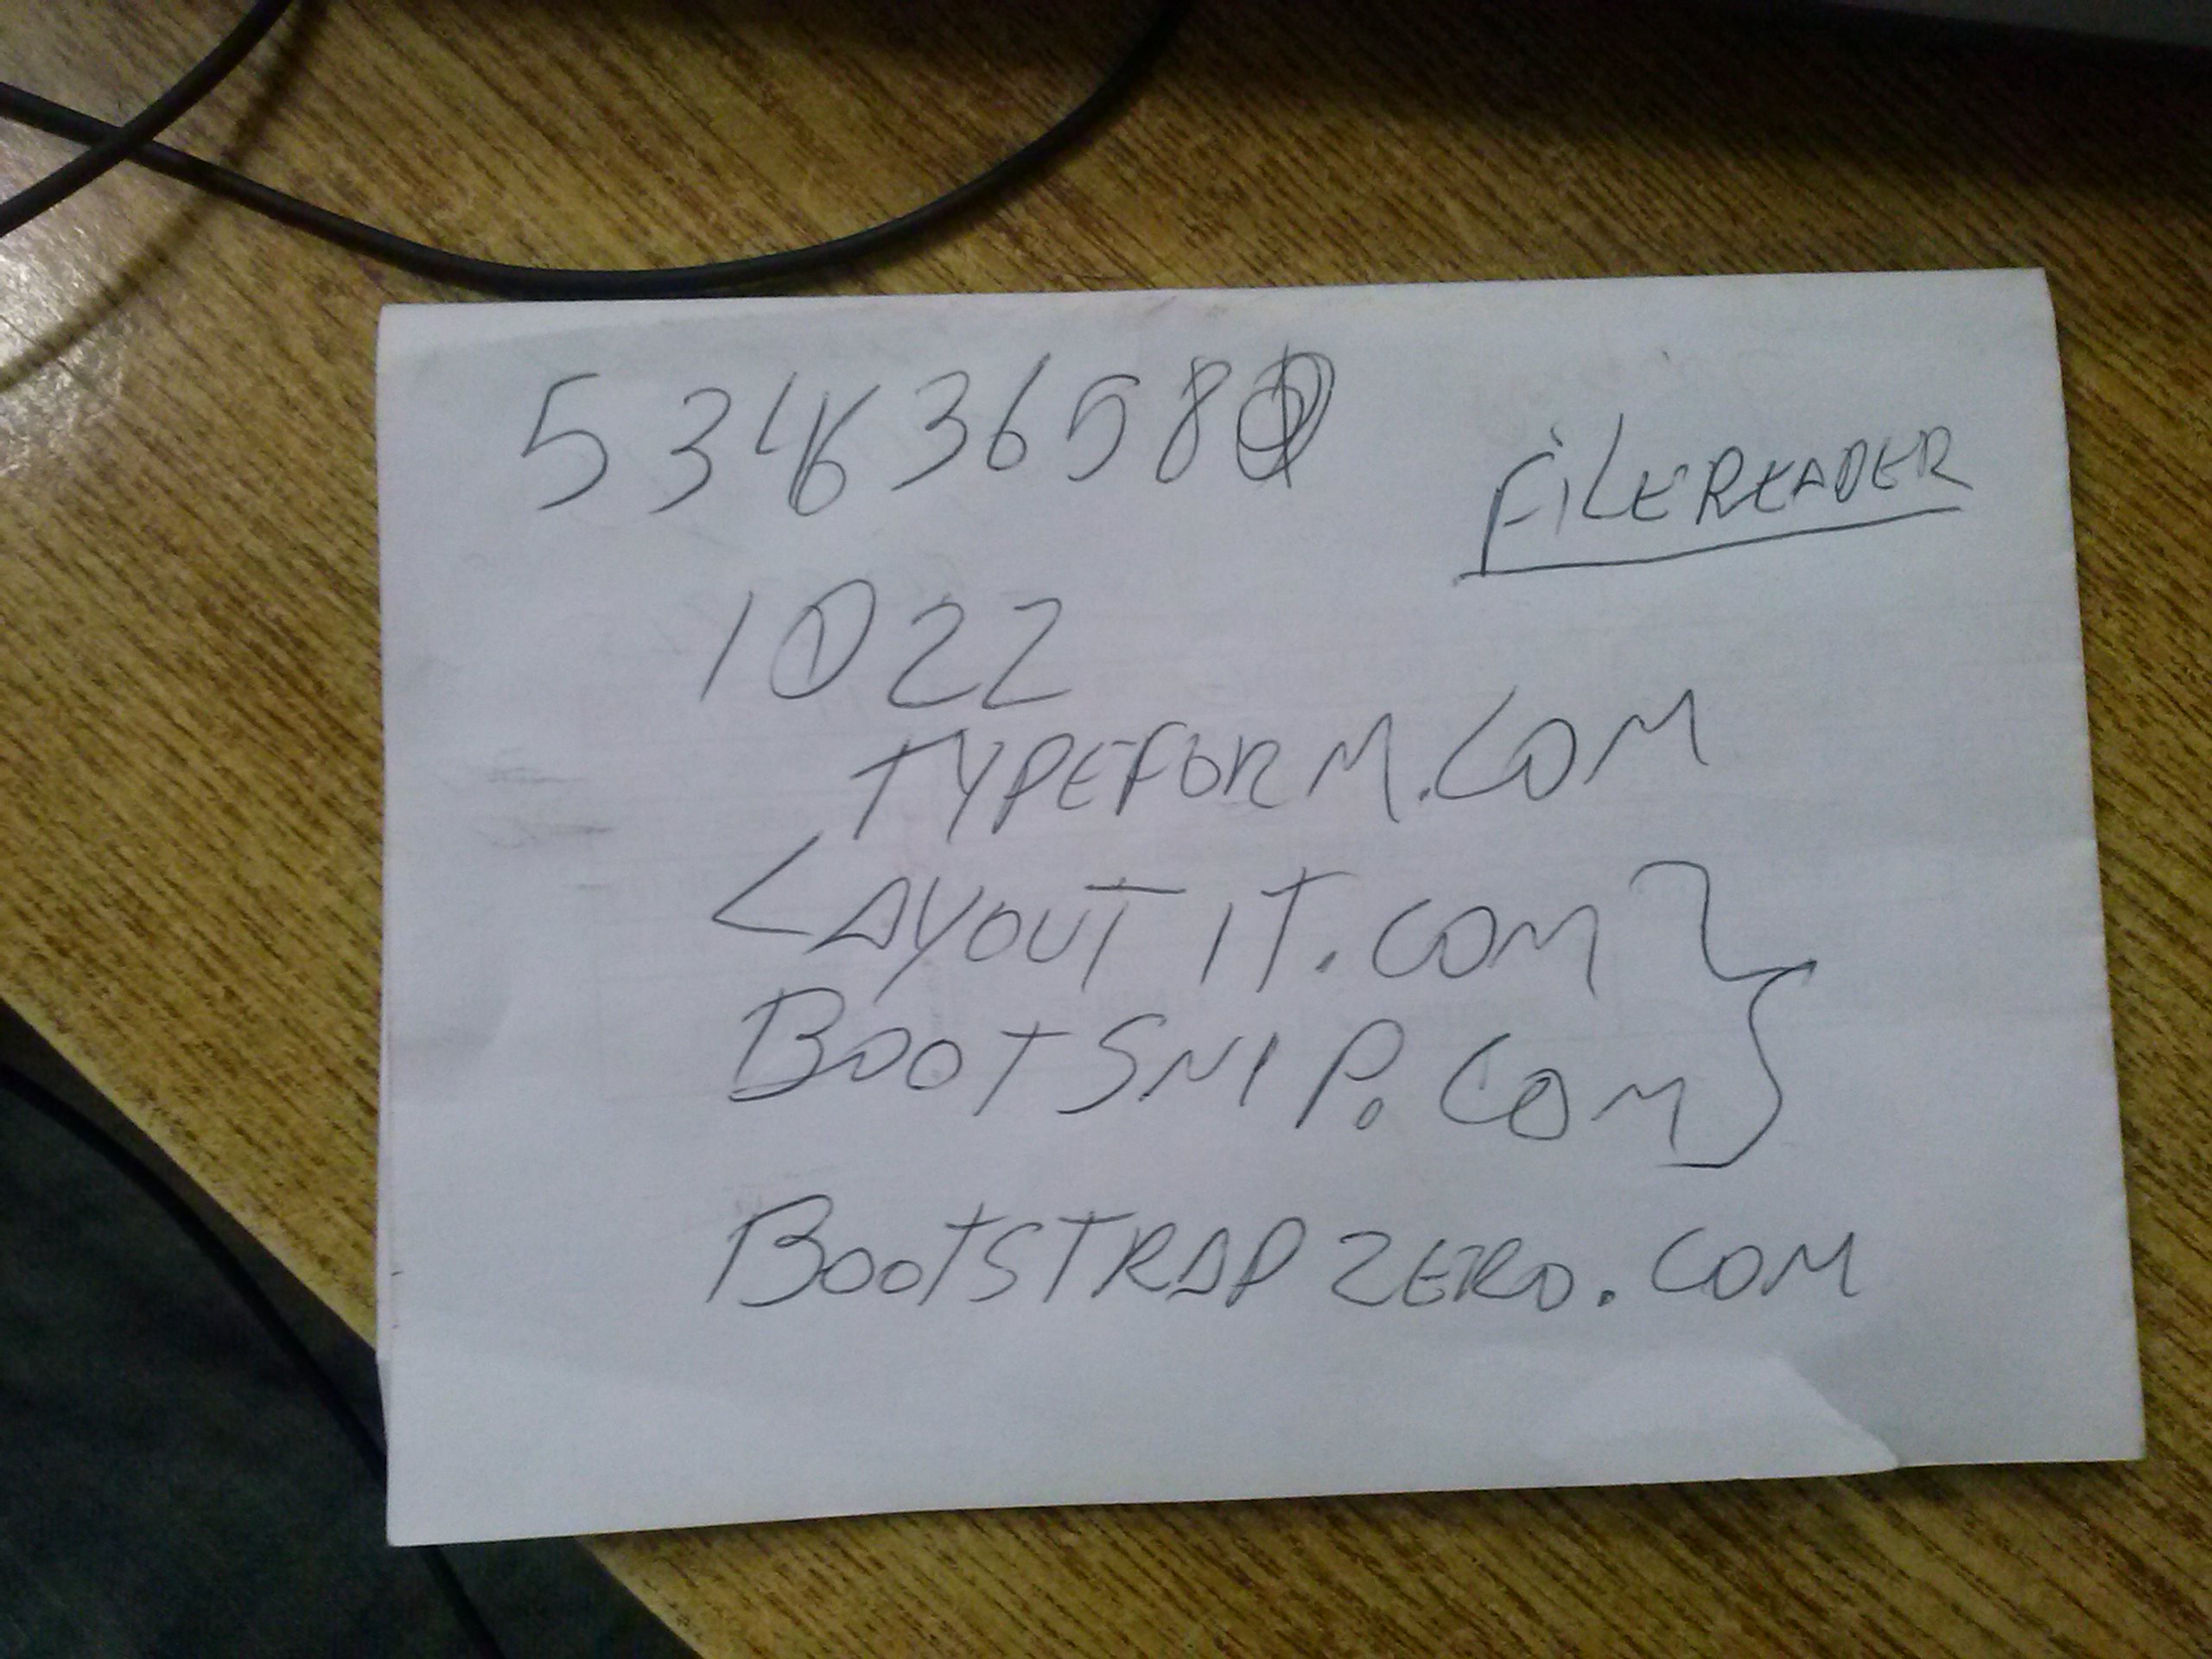 534636580
FILEREADER
1022
TYPEFORM.COM
LAYOUT IT.COM
BOOTSNIP.COM
BOOTSTRAP ZERO.COM